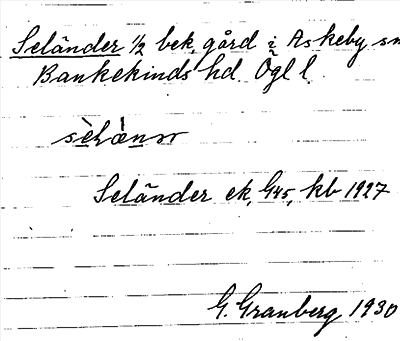 Seländer ½ bek. gård i Askeby sn
Bankekinds hd. Ögl l.
Seländer ek, G45, kb 1927
G. Granberg 1930